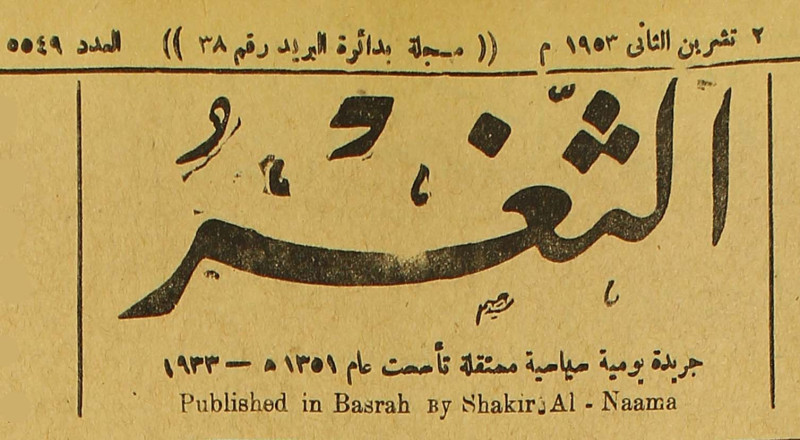 ٢ تشرين الثانى ١٩٥٣ م (( مسجلة بدائرة البريد رقم ٣٨ )) العدد ٥٥٤٩
الثَّغْرُ
جريدة يومية سياسية مستقلة تأسست عام ١٣٥١ ه — ١٩٣٣
Published in Basrah By Shakir Al - Naama